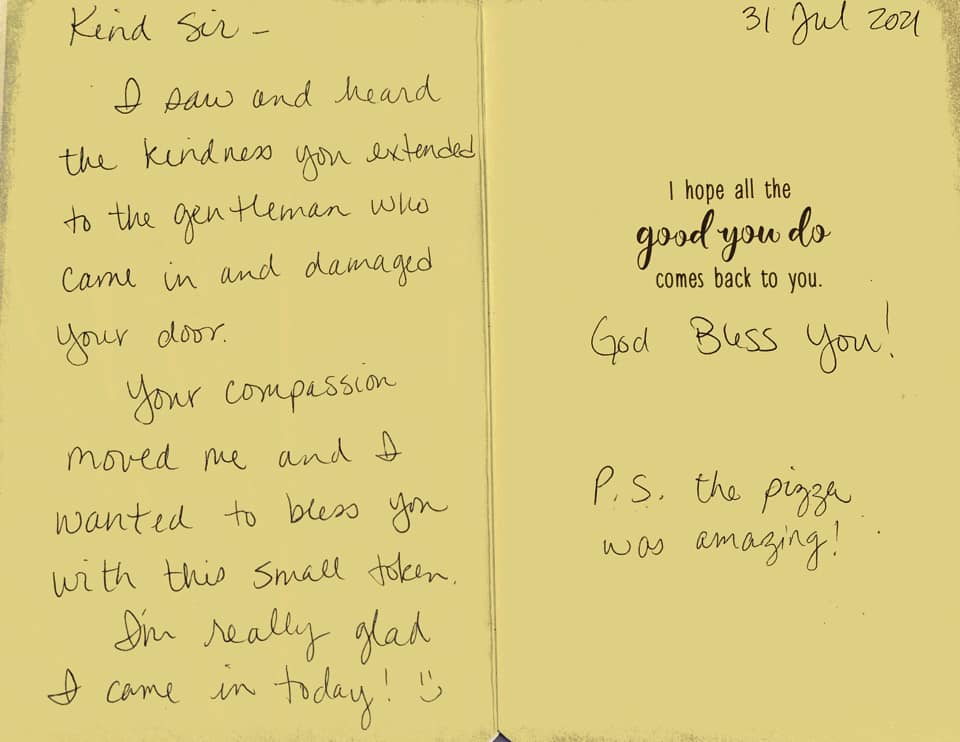 Kind Sir -
I saw and heard
the kindness you extended
to the gentleman who
came in and damaged
your door.
Your compassion
moved me and I
wanted to bless you
with this small token.
I'm really glad
I came in today! :)
31 Jul 2021
I hope all the
good you do
comes back to you.
God Bless You!
P.S. the pizza
was amazing!